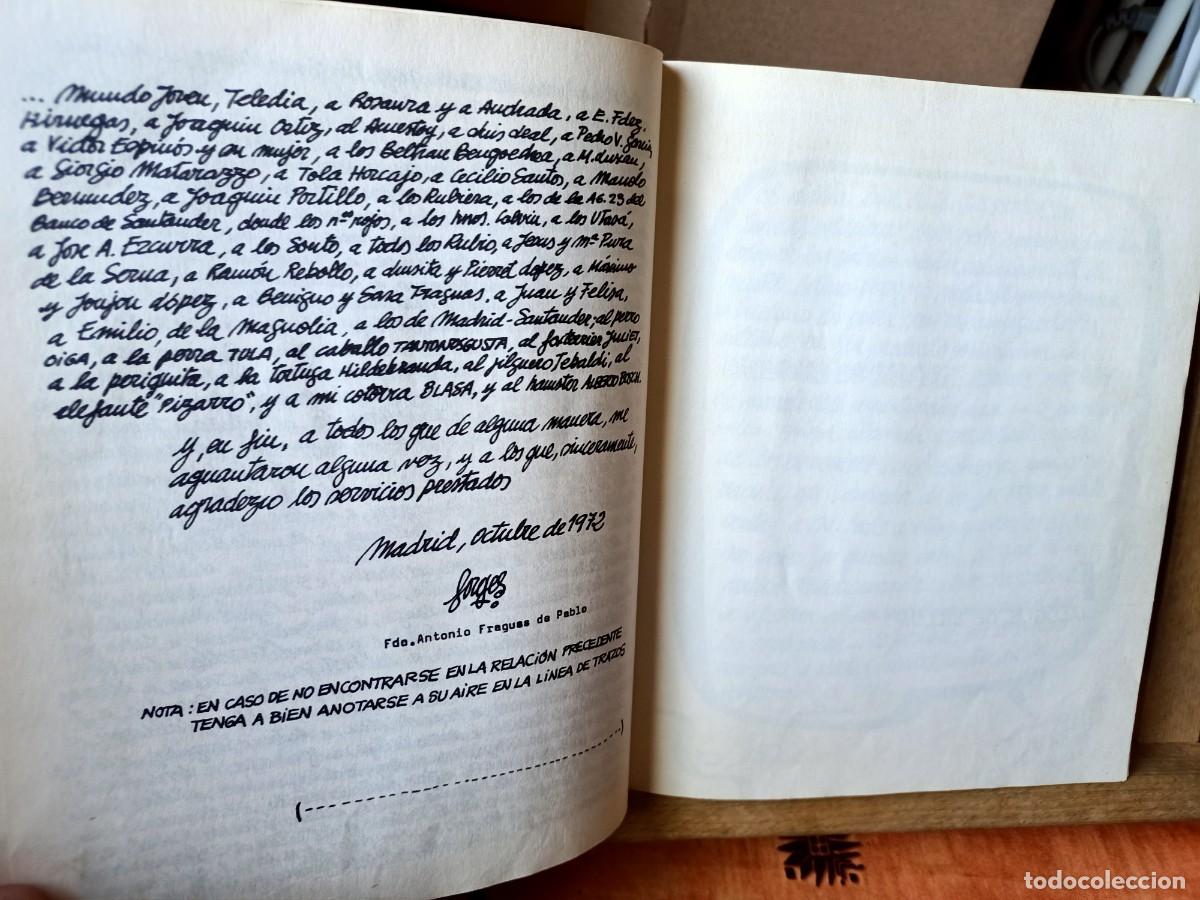 ... Mundo Joven, Teledia, a Rosaura y a Andrada, a E. Fdez.
Hiruegas, a Joaquin Ortiz, al Amestoy, a Luis Leal, a Pedro V. García,
a Victor Espinós y su mujer, a los Beltran Bengoechea, a M. Luxan,
a Giorgio Matarazzo, a Tola Horcajo, a Cecilio Santos, a Manolo
Bermudez, a Joaquin Portillo, a los Rubiera, a los de la AG. 29 del
Banco de Santander, donde los nºs rojos, a los hnos. Calvin, a los Utavá,
a Jose A. Ezcurra, a los Souto, a todos los Rubio, a Jesus y Mª Pura
de la Serna, a Ramón Rebollo, a Luisita y Pierret López, a Máximo
y Joujou López, a Benigno y Sara Fraguas, a Juan y Felisa,
a Emilio, de la Magnolia, a los de Madrid-Santander; al perro
OIGA, a la perra TOLA, al caballo TANTONOSGUSTA, al foxterrier JULIET,
a la periquita, a la tortuga Hildebranda, al jilguero Tebaldi, al
elefante "Pizarro", y a mi cotorra BLASA, y al hamster ALBERTO BOSCH.
Y, en fin, a todos los que de alguna manera, me
aguantaron alguna vez, y a los que, sinceramente,
agradezco los servicios prestados
Madrid, octubre de 1972
forges
Fdo. Antonio Fraguas de Pablo
NOTA: EN CASO DE NO ENCONTRARSE EN LA RELACIÓN PRECEDENTE
TENGA A BIEN ANOTARSE A SU AIRE EN LA LÍNEA DE TRAZOS
(------------------------------)
todocoleccion